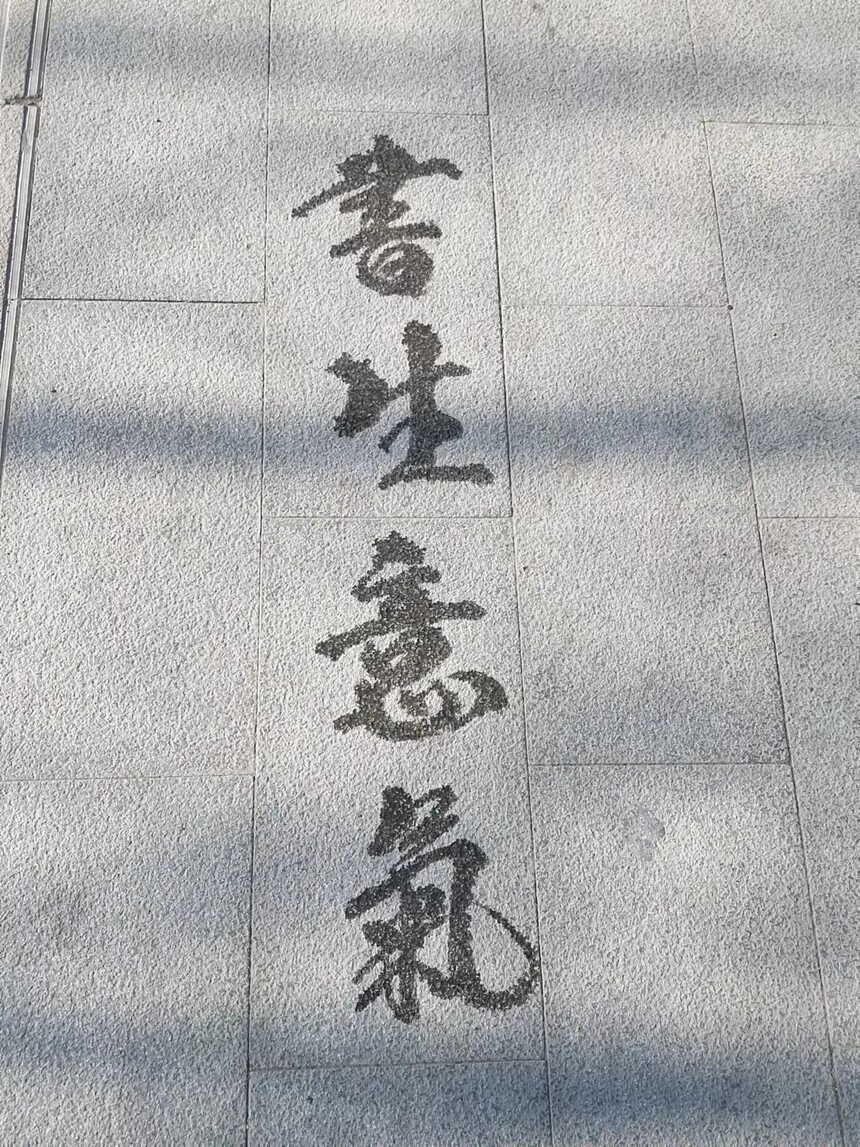 書生意氣